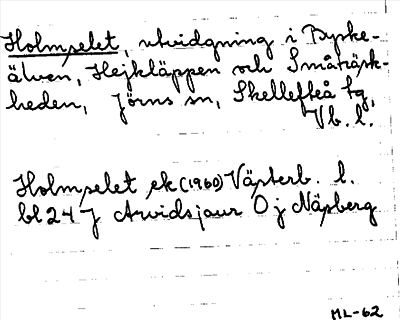 Holmselet, utvidgning i Byske-
älven, Hejkläppen och Småträsk-
heden, Jörns sn, Skellefteå tg,
Vb. l.
Holmselet ek (1960) Västerb. l.
bl 24 J Arvidsjaur O j Näsberg
ML-62